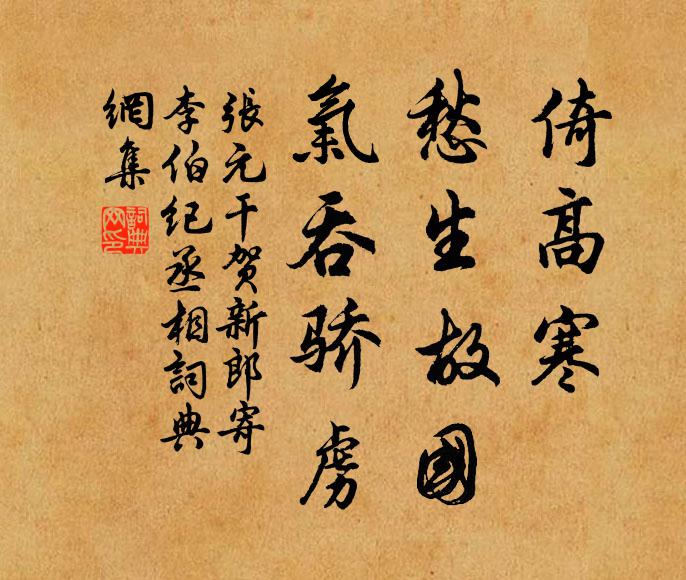 倚高寒
愁生故國
氣吞骄虜
張元干贺新郎寄
李伯纪丞相詞典
網集
詞典
网印